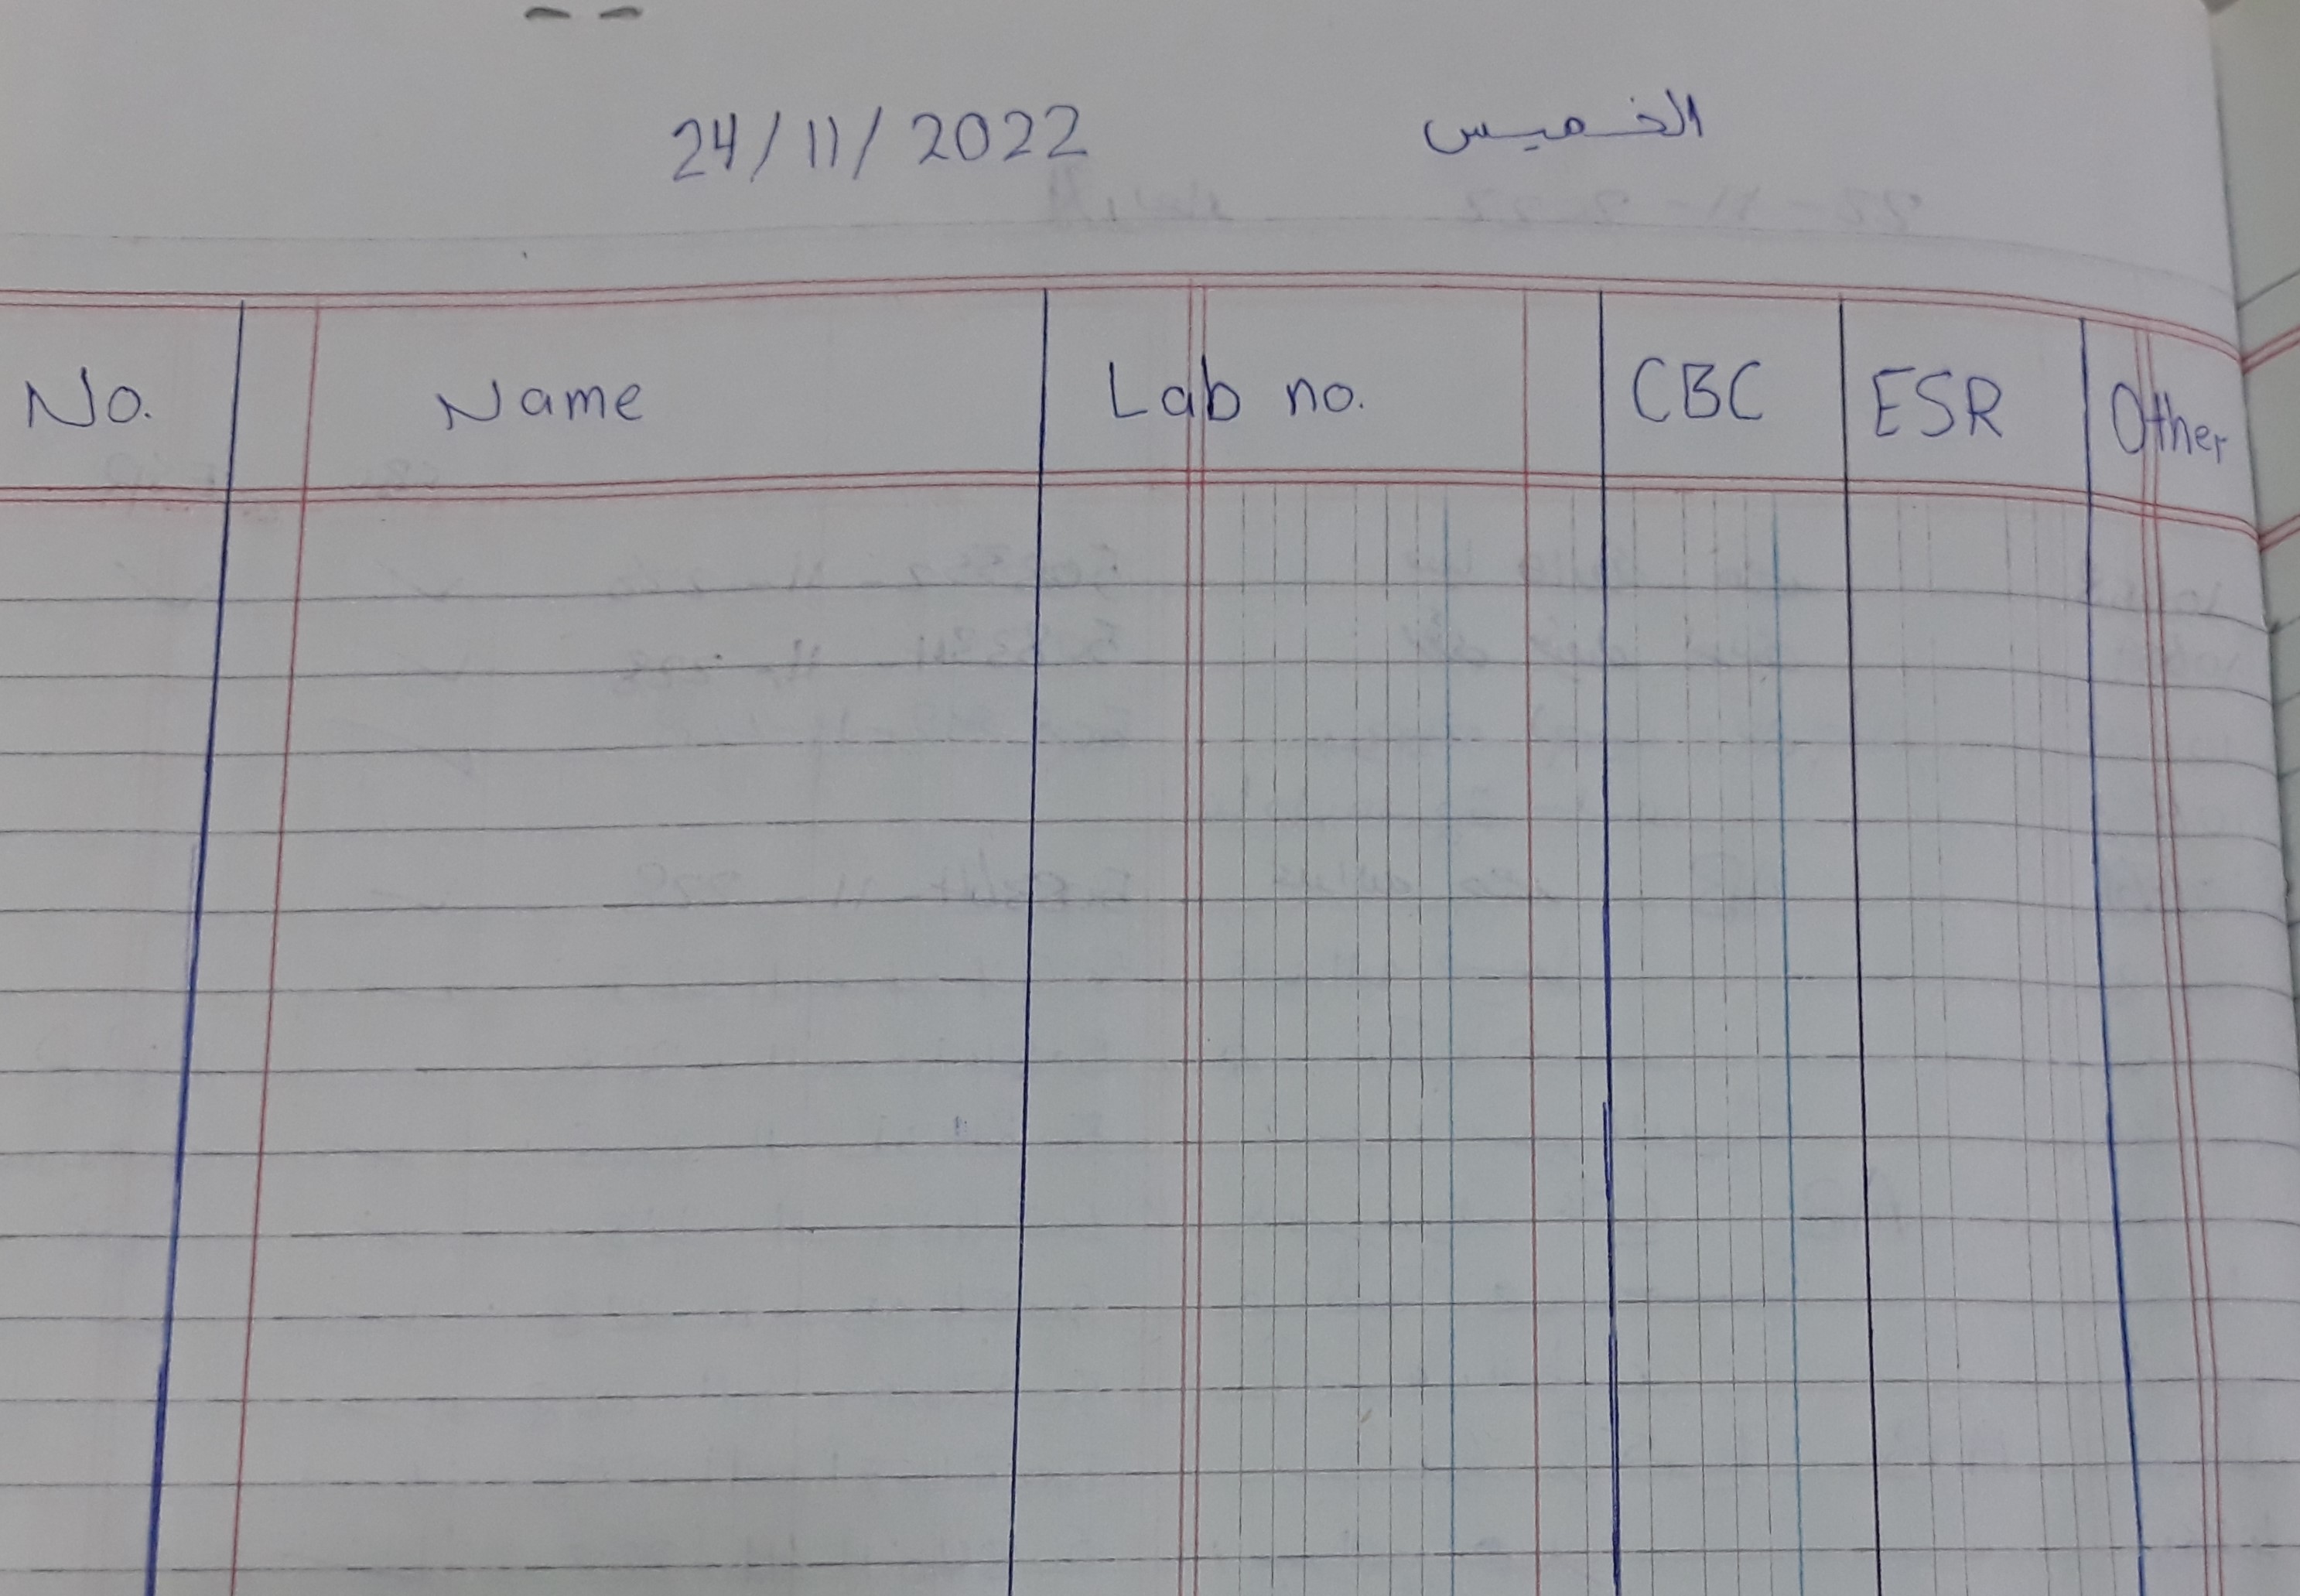 24/11/2022 الخميس
No. Name Lab no. CBC ESR Other